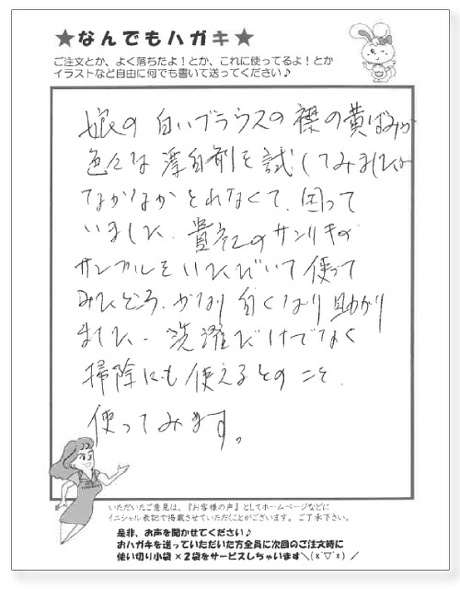 ★なんでもハガキ★
ご注文とか、よく落ちたよ！とか、これに使ってるよ！とか
イラストなど自由に何でも書いて送ってください♪
娘の白いブラウスの襟の黄ばみが
色々な漂白剤を試してみましたが
なかなかとれなくて、困って
いました。貴社のサンリキの
サンプルをいただいて使って
みたところ、かなり白くなり助かり
ました。洗濯だけでなく
掃除にも使えるとのこと、
使ってみます。
いただいたご意見は、『お客様の声』としてホームページなどに
イニシャル表記で掲載させていただくことがございます。ご了承下さい。
是非、お声を聞かせてください♪
おハガキを送っていただいた方全員に次回のご注文時に
使い切り小袋×2袋をサービスしちゃいます＼(≧▽≦)／